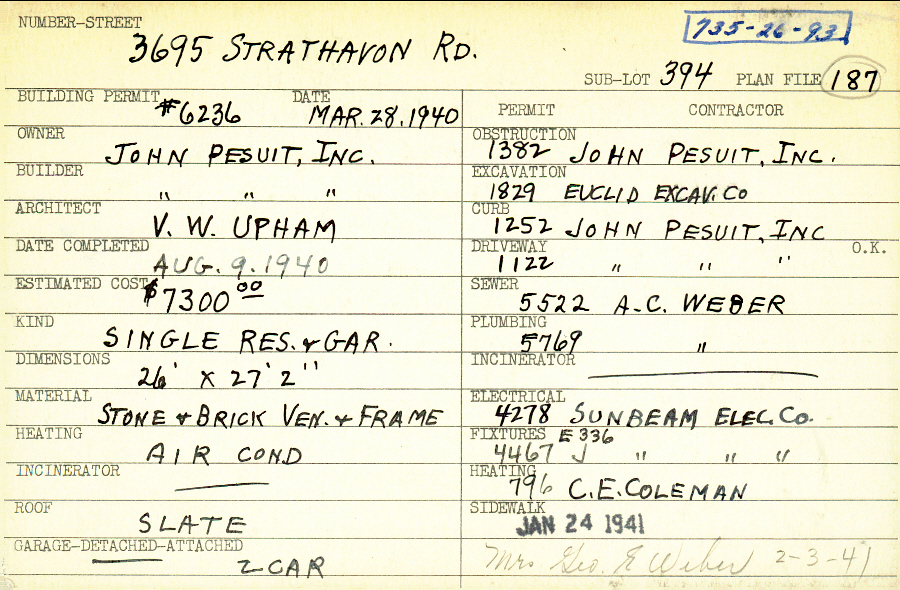 NUMBER-STREET
735-26-93
3695 STRATHAVON RD.
SUB-LOT 394 PLAN FILE 187
BUILDING PERMIT #6236 DATE MAR. 28. 1940
PERMIT CONTRACTOR
OWNER JOHN PESUIT, INC.
OBSTRUCTION 1382 JOHN PESUIT, INC.
BUILDER " " "
EXCAVATION 1829 EUCLID EXCAV. CO
ARCHITECT V. W. UPHAM
CURB 1252 JOHN PESUIT, INC
DATE COMPLETED AUG. 9. 1940
DRIVEWAY 1122 " " " O.K.
ESTIMATED COST $7300 00
SEWER 5522 A.C. WEBER
KIND SINGLE RES. & GAR.
PLUMBING 5769 "
DIMENSIONS 26' X 27' 2"
INCINERATOR
MATERIAL STONE & BRICK VEN. & FRAME
ELECTRICAL 4278 SUNBEAM ELEC. CO.
HEATING AIR COND
FIXTURES E 336
4467 J " " "
INCINERATOR
HEATING 796 C.E. COLEMAN
ROOF SLATE
SIDEWALK JAN 24 1941
GARAGE-DETACHED-ATTACHED 2 CAR
Mrs Geo. E Weber 2-3-41